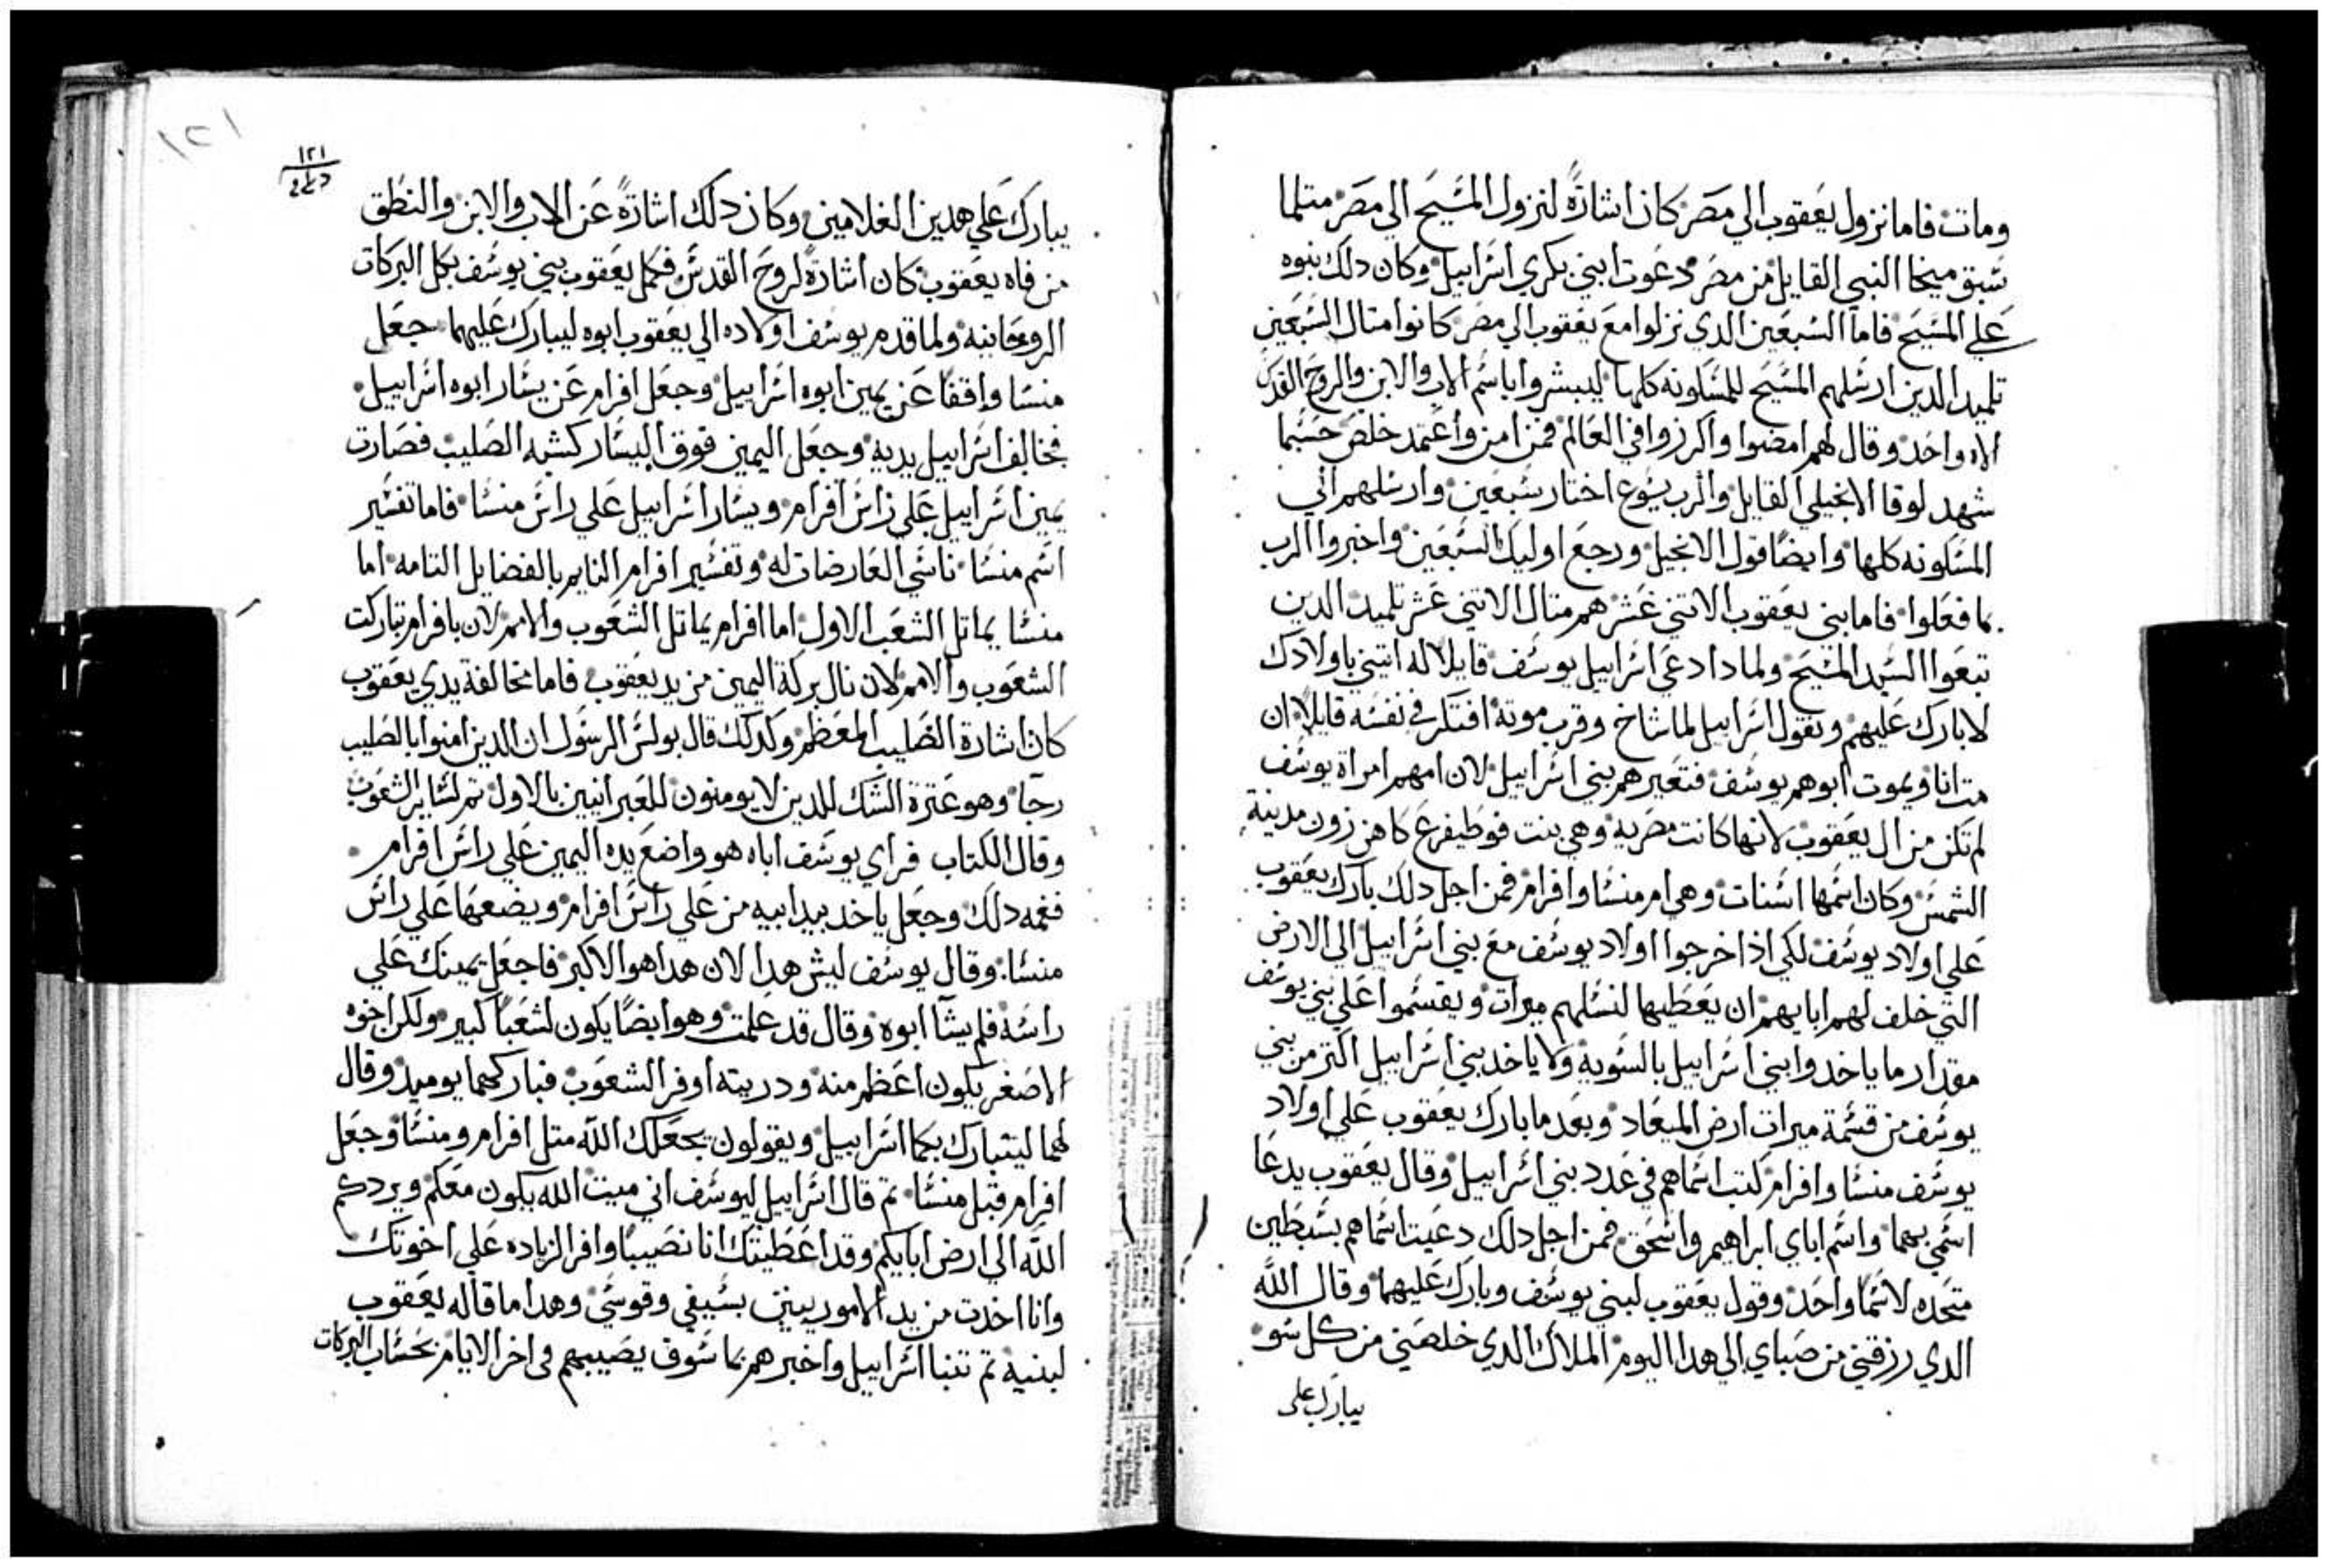 ومات فاما نزول يعقوب الي مصر كان اشارةً لنزول المسيح الي مصر متلما
سبق ميخا النبي القايل من مصر دعوت ابني بكري اسراييل وكان دلك بنوه
علي المسيح فاما السبعين الدي نزلوا مع يعقوب الي مصر كانوا متال السبعين
تلميد الدين ارسلهم المسيح للمسكونه كلها ليبشروا باسم الاب والابن والروح القدس
الاه واحد وقال لهم امضوا واكرزوا في العالم فمن امن وأعتمد خلص حسبما
شهد لوقا الانجيلي القايل والرب يسوع اختار سبعين وارسلهم الي
المسكونه كلها وايضًا قول الانجيل ورجع اوليك السبعين واخبروا الرب
بما فعلوا فاما بني يعقوب الاتني عشر هم متال الاتني عشر تلميد الدين
تبعوا السيد المسيح ولمادا دعي اسراييل يوسف قايلا له اتيني باولادك
لابارك عليهم ونقول اسراييل لما شاخ وقرب موته افتكر في نفسه قايلاً ان
مت انا ويموت ابوهم يوسف فتعيرهم بني اسراييل لان امهم امراة يوسف
لم تكن من ال يعقوب لانها كانت مصريه وهي بنت فوطيفرع كاهن زون مدينة
الشمس وكان اسمها اسنات وهي ام منسا وافرام فمن اجل دلك بارك يعقوب
علي اولاد يوسف لكي اذا خرجوا اولاد يوسف مع بني اسراييل الي الارض
التي خلف لهم ابايهم ان يعطيها لنسلهم ميرات ويقسموا علي بني يوسف
مقدار ما ياخدوا بني اسراييل بالسويه ولا ياخد بني اسراييل اكتر من بني
يوسف من قسمة ميرات ارض الميعاد وبعد ما بارك يعقوب علي اولاد
يوسف منسا وافرام كتب اسماهم في عدد بني اسراييل وقال يعقوب يدعا
اسمي بهما واسم اباي ابراهيم واسحق فمن اجل دلك دعيت اسماهم بسبطين
متحده لاسما واحد وقول يعقوب لبني يوسف وبارك عليهما وقال الله
الدي رزقني من صباي الي هدا اليوم الملاك الدي خلصني من كل سو
يبارك علي
١٢١
١٢١
يبارك علي هدين الغلامين وكان دلك اشارةً عن الاب والابن والنطق
من فاه يعقوب كان اشارةً لروح القدس فكمل يعقوب بني يوسف بكمل البركات
الروحانيه ولما قدم يوسف اولاده الي يعقوب ابوه ليبارك عليهما جعل
منسا واقفًا عن يمين ابوه اسراييل وجعل افرام عن يسار ابوه اسراييل
فخالف اسراييل يديه وجعل اليمين فوق اليسار كشبه الصليب فصارت
يمين اسراييل علي راس افرام ويسار اسراييل علي راس منسا فاما تفسير
اسم منسا ناسي العارضات له وتفسير افرام النايم بالفضايل التامه اما
منسا يماتل الشعب الاول اما افرام يماتل الشعوب والامم لان بافرام تباركت
الشعوب والامم لان نال بركة اليمين من يد يعقوب فاما مخالفة يدي يعقوب
كان اشارة الصليب المعظم وكدلك قال بولس الرسول ان الدين امنوا بالصليب
رجا وهو عترة الشك للدين لا يومنون للعبرانيين بالاول تم لساير الشعوب
وقال الكتاب فراي يوسف اباه هو واضع يده اليمين علي راس افرام
فغمه دلك وجعل ياخد بيد ابيه من علي راس افرام ويضعها علي راس
منسا وقال يوسف ليش هدا لان هدا هو الاكبر فاجعل يمينك علي
راسه فلم يشآ ابوه وقال قد علمت وهو ايضًا يكون لشعبًا كبير ولكن اخوه
الاصغر يكون اعظم منه ودريته اوفر الشعوب فباركهما يوميد وقال
لهما ليتبارك بكما اسراييل ويقولون يجعلك الله متل افرام ومنسا وجعل
افرام قبل منسا تم قال اسراييل ليوسف اني ميت الله يكون معكم ويردكم
الله الي ارض ابايكم وقد اعطيتك انا نصيبًا وافر الزياده علي اخوتك
وانا اخدت من يد الاموريين بسيفي وقوسي وهدا ما قاله يعقوب
لبنيه تم تنبا اسراييل واخبرهم بما سوف يصيبهم في اخر الايام بحساب البركات